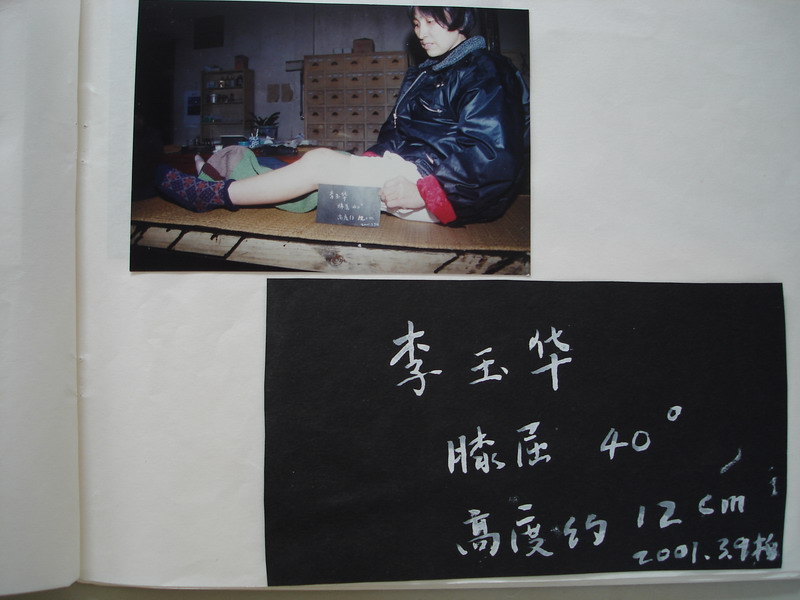 李玉华
膝屈 40°
高度约 12cm
2001.3.9拍
李玉华
膝屈 40°
高度约 12cm
2001.3.9拍